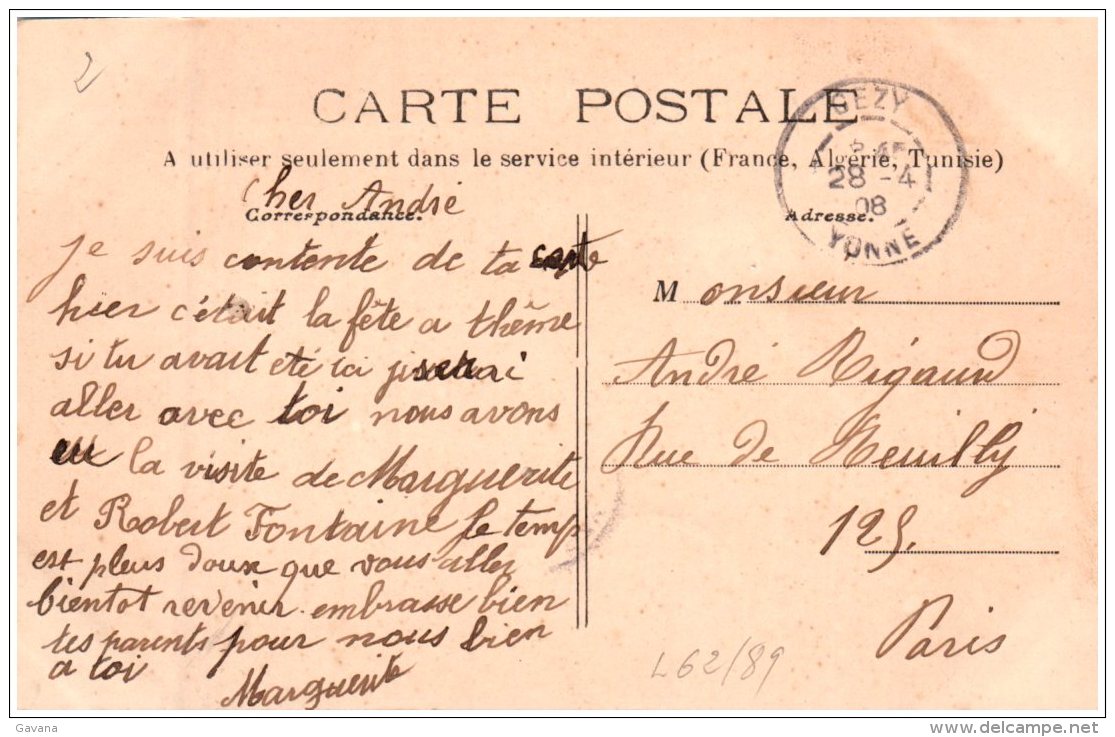 2
CARTE POSTALE
A utiliser seulement dans le service intérieur (France, Algérie, Tunisie)
CEZY
28 - 4
08
YONNE
Correspondance.
Cher André
Je suis contente de ta carte
hier c'était la fête a thême
si tu avait eté ici
aller avec toi nous avons
eu la visite de Marguerite
et Robert Fontaine le temp
est pleus doux que vous aller
bientot revenir embrasse bien
tes parents pour nous bien
a toi
Marguerite
Adresse.
Monsieur
André Rigaud
Rue de Neuilly
125.
Paris
L62/89
Gavana
www.delcampe.net